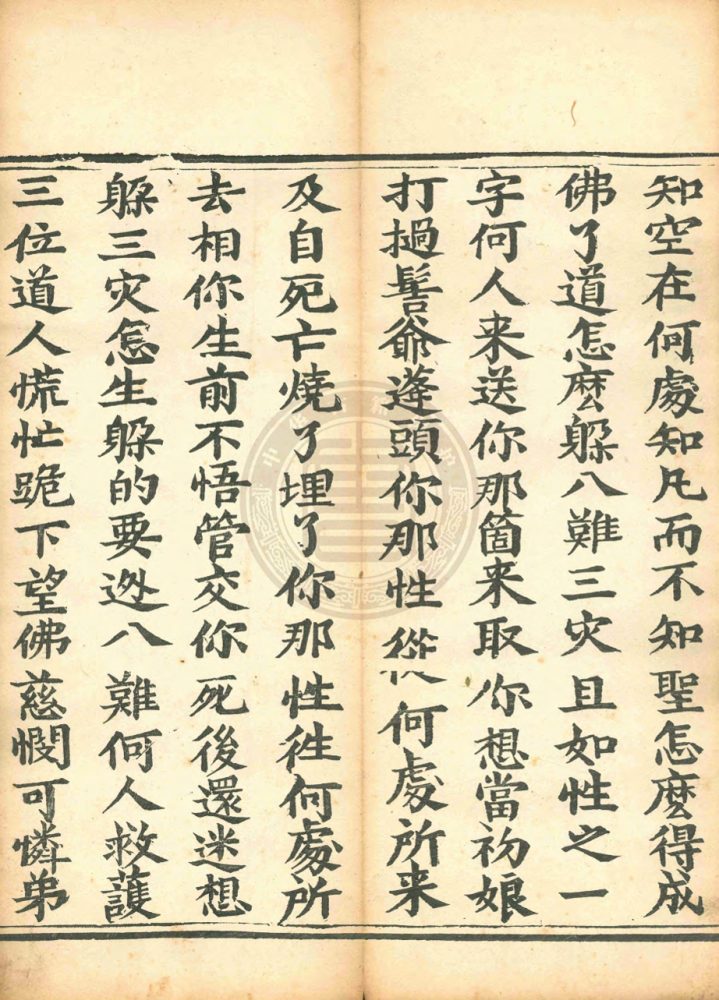 知空在何處知凡而不知聖怎麽得成
佛了道怎麽躲八難三灾且如性之一
字何人来送你那箇来取你想當初娘
打撾髻爺蓬頭你那性從何處所来
及自死亡燒了埋了你那性徃何處所
去相你生前不悟管交你死後還迷想
躲三灾怎生躲的要迯八難何人救護
三位道人慌忙跪下望佛慈憫可憐弟